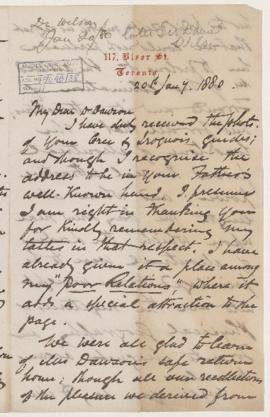 Dr Wilson
Jan 20/80
117, Bloor St.
Toronto.
20th Jany. 1880.
My Dear Dr Dawson
I have duly received the photo.
of your Cree & Iroquois guides;
and though I recognise the
address to be in your Father's
well-known hand, I presume
I am right in thanking you
for kindly remembering my
tastes in that respect. I have
already given it a place among
my "Poor Relations" where it
adds a special attraction to the
page.
We were all glad to learn
of Miss Dawson's safe return
home; though all our recollections
of the pleasure we derived from